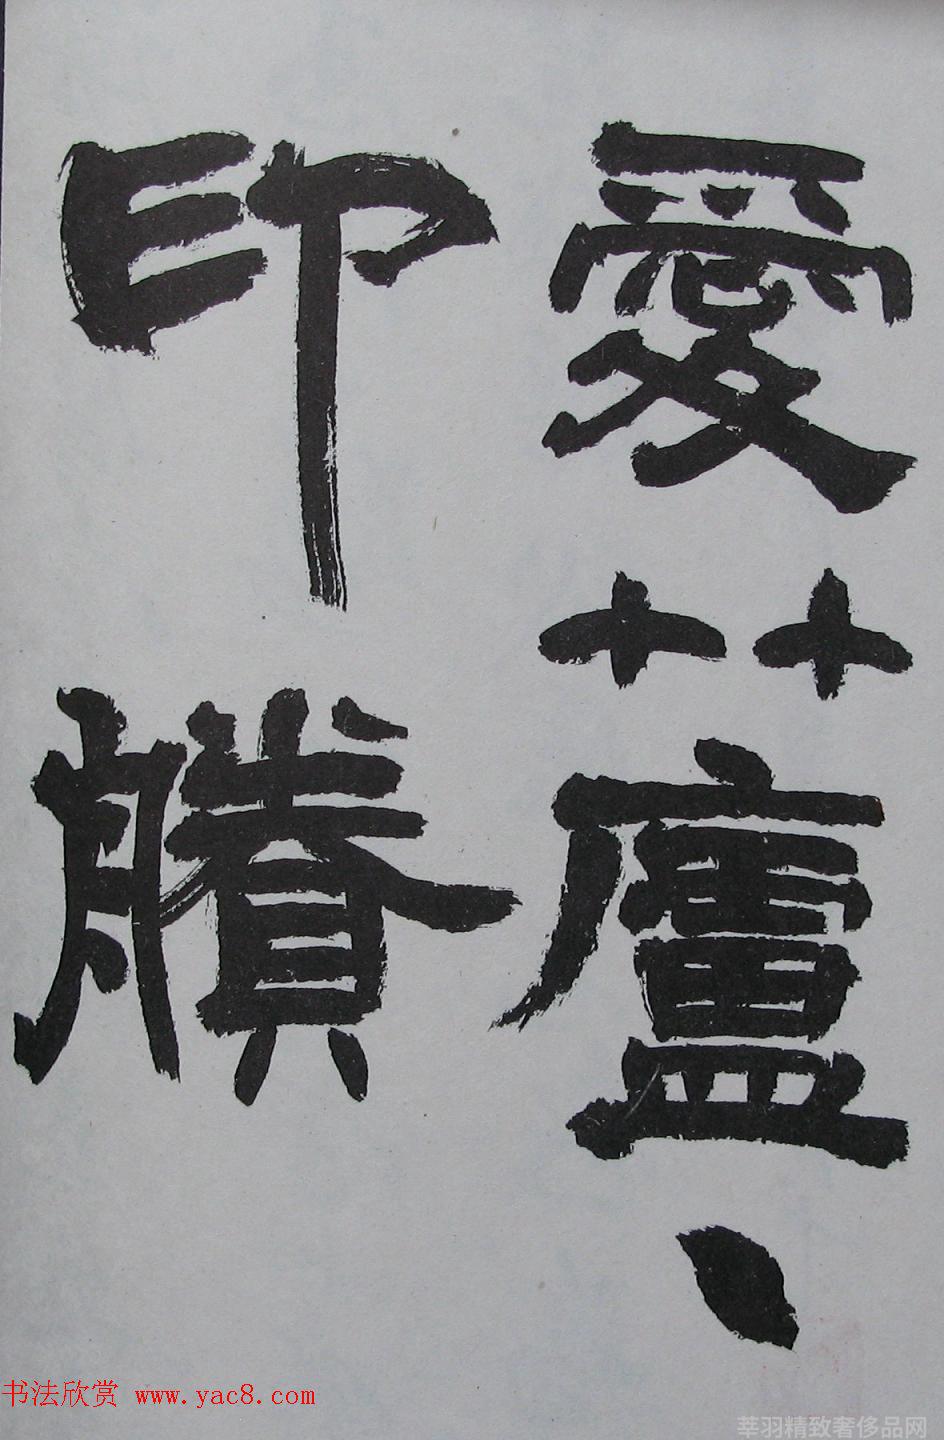 愛蘆、
印賸
书法欣赏 www.yac8.com
莘羽精致奢侈品网